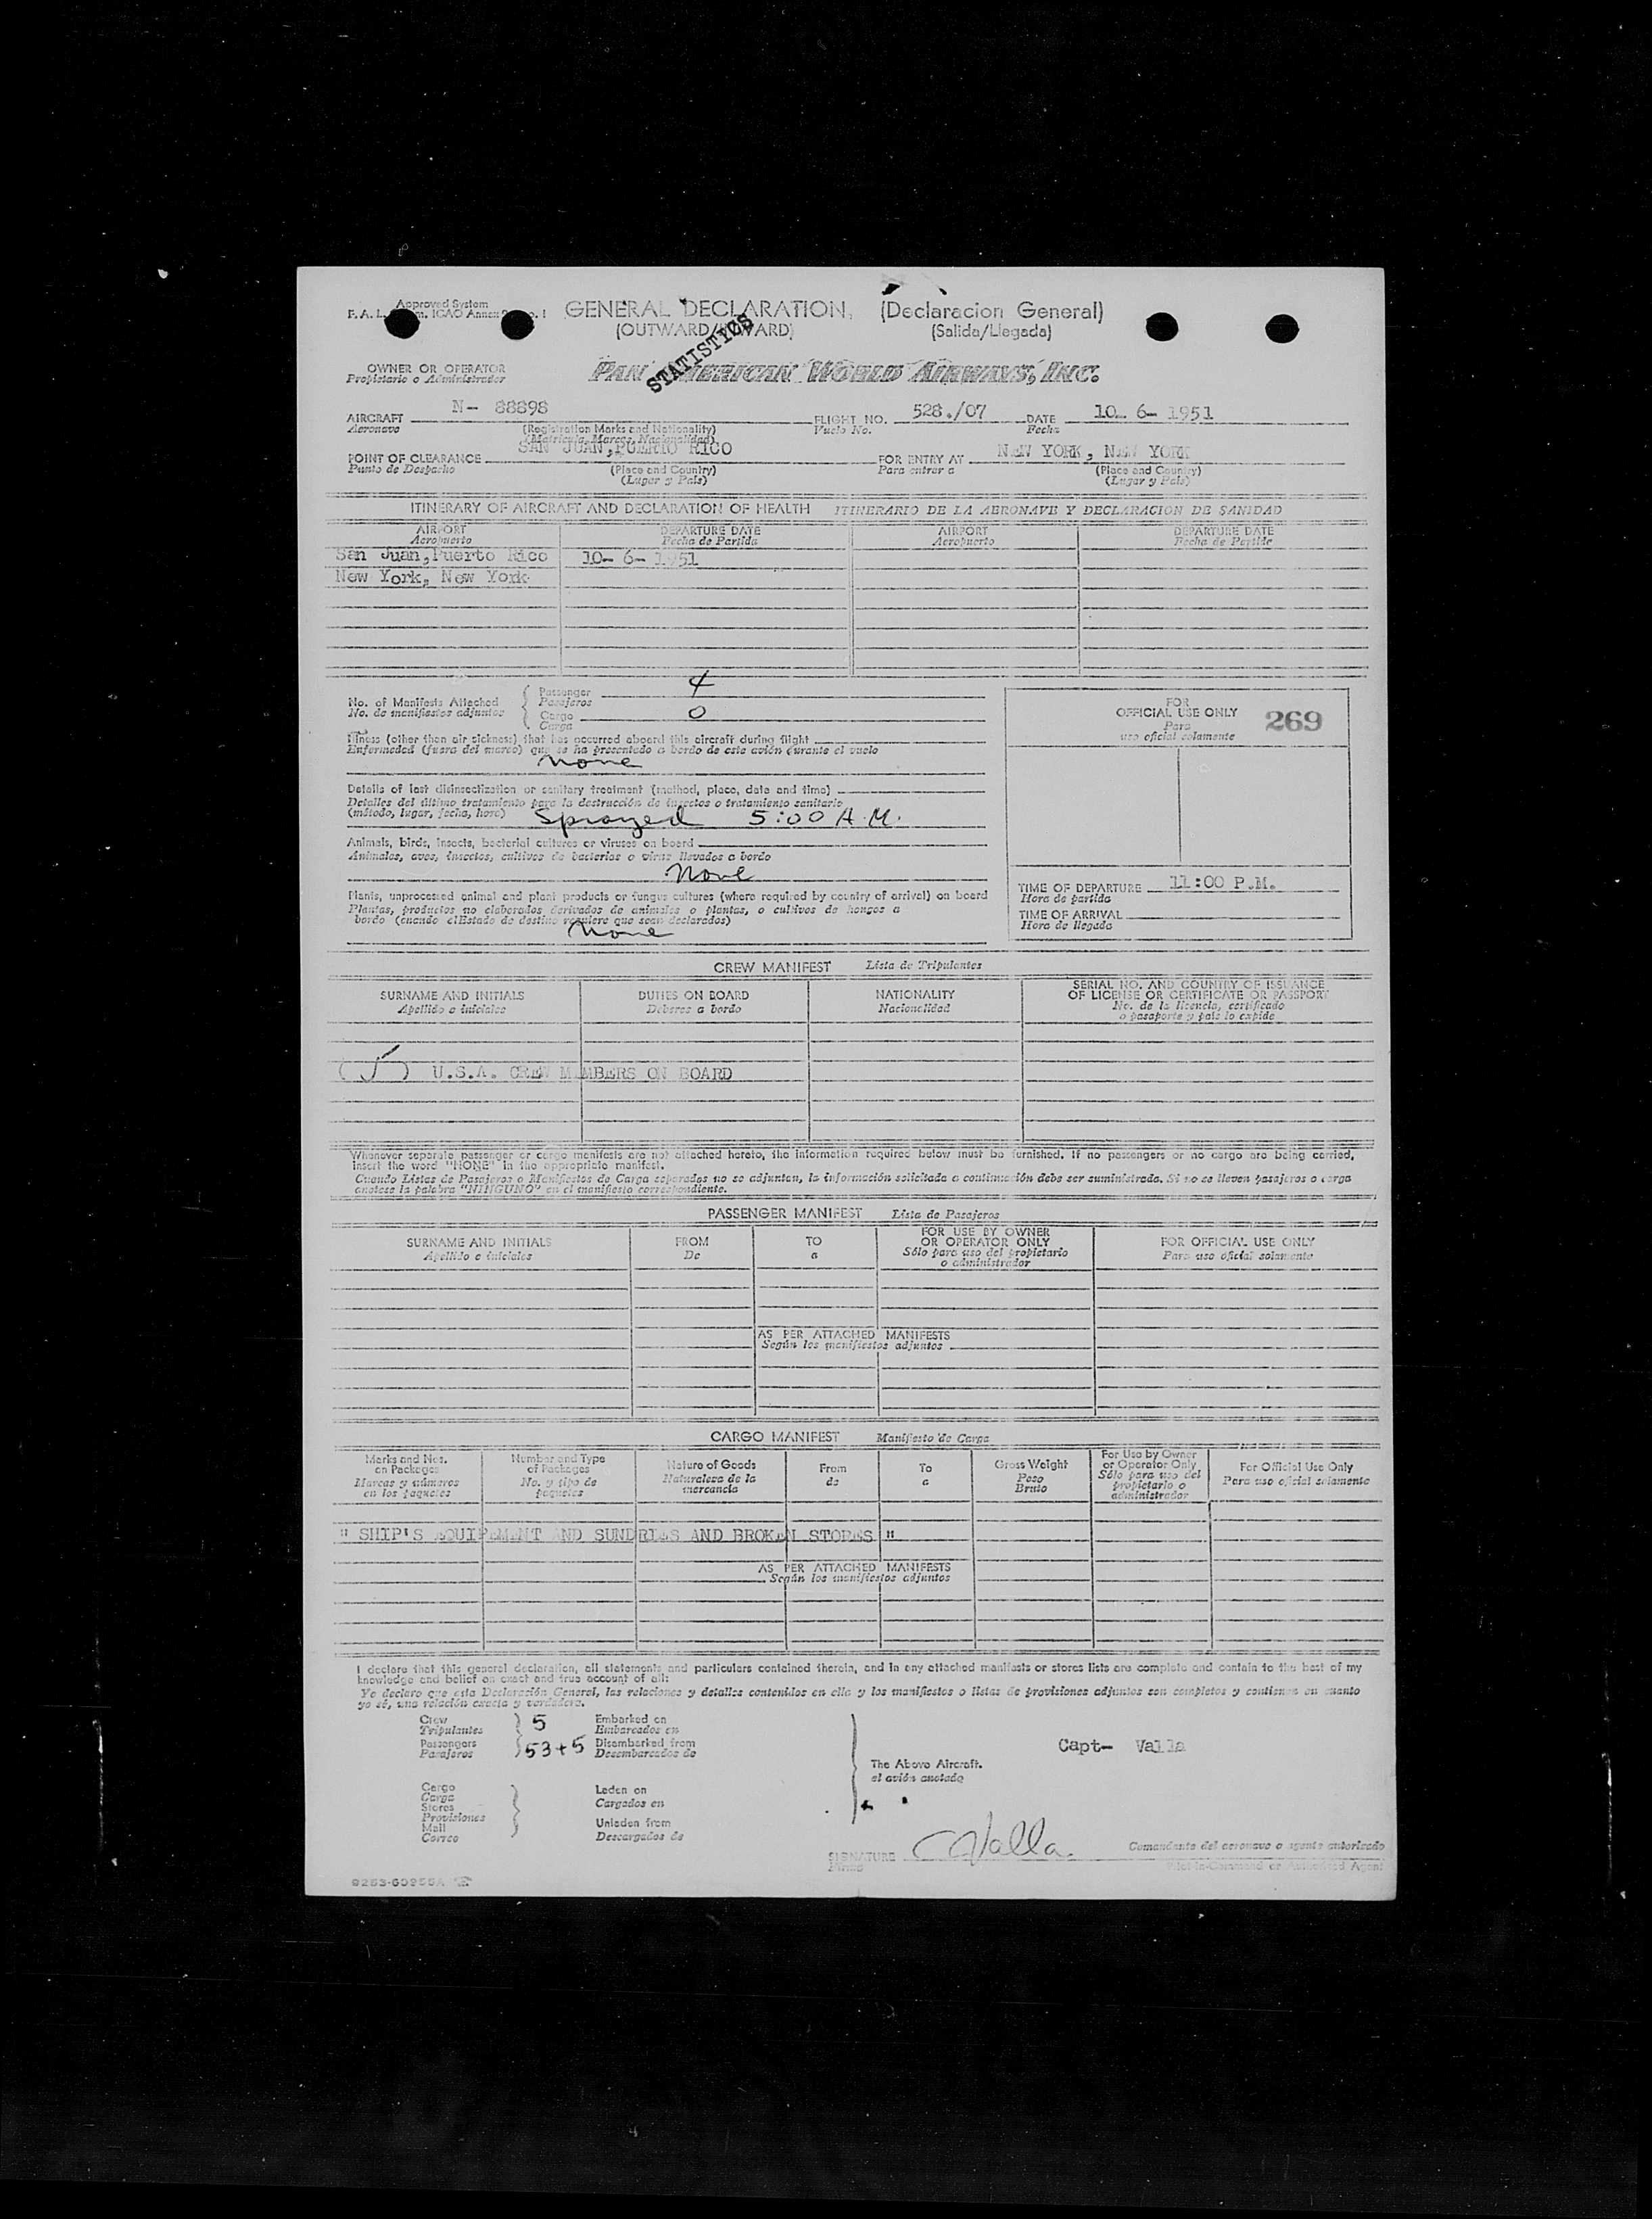 Approved System
GENERAL DECLARATION, (Declaracion General)
(OUTWARD/INWARD) (Salida/Llegada)
STATISTICS
OWNER OR OPERATOR
Propietario o Administrador
PAN AMERICAN WORLD AIRWAYS, INC.
AIRCRAFT N- 88898 FLIGHT NO. 528./07 DATE 10- 6- 1951
Aeronave (Registration Marks and Nationality) Vuelo No. Fecha
(Matricula, Marcas, Nacionalidad)
POINT OF CLEARANCE SAN JUAN, PUERTO RICO FOR ENTRY AT NEW YORK, NEW YORK
Punto de Despacho (Place and Country) Para entrar a (Place and Country)
(Lugar y País) (Lugar y País)
ITINERARY OF AIRCRAFT AND DECLARATION OF HEALTH ITINERARIO DE LA AERONAVE Y DECLARACION DE SANIDAD
AIRPORT DEPARTURE DATE AIRPORT DEPARTURE DATE
Aeropuerto Fecha de Partida Aeropuerto Fecha de Partida
San Juan, Puerto Rico 10- 6- 1951
New York, New York
No. of Manifests Attached Passenger 4
No. de manifiestos adjuntos Pasajeros
Cargo 0
Carga
FOR
OFFICIAL USE ONLY 269
Para
uso oficial solamente
Illness (other than air sickness) that has occurred aboard this aircraft during flight
Enfermedad (fuera del mareo) que se ha presentado a bordo de este avión durante el vuelo
None
Details of last disinsectization or sanitary treatment (method, place, date and time)
Detalles del último tratamiento para la destrucción de insectos o tratamiento sanitario
(método, lugar, fecha, hora) Sprayed 5:00 A.M.
Animals, birds, insects, bacterial cultures or viruses on board
Animales, aves, insectos, cultivos de bacterias o virus llevados a bordo
None
Plants, unprocessed animal and plant products or fungus cultures (where required by country of arrival) on board
Plantas, productos no elaborados derivados de animales o plantas, o cultivos de hongos a
bordo (cuando el Estado de destino requiere que sean declarados)
None
TIME OF DEPARTURE 11:00 P.M.
Hora de partida
TIME OF ARRIVAL
Hora de llegada
CREW MANIFEST Lista de Tripulantes
SURNAME AND INITIALS DUTIES ON BOARD NATIONALITY SERIAL NO. AND COUNTRY OF ISSUANCE
OF LICENSE OR CERTIFICATE OR PASSPORT
Apellido e iniciales Deberes a bordo Nacionalidad No. de la licencia, certificado
o pasaporte y país lo expide
(5) U.S.A. CREW MEMBERS ON BOARD
Whenever separate passenger or cargo manifests are not attached hereto, the information required below must be furnished. If no passengers or no cargo are being carried,
insert the word "NONE" in the appropriate manifest.
Cuando Listas de Pasajeros o Manifiestos de Carga separados no se adjuntan, la información solicitada a continuación debe ser suministrada. Si no se lleven pasajeros o carga
anótese la palabra "NINGUNO" en el manifiesto correspondiente.
PASSENGER MANIFEST Lista de Pasajeros
SURNAME AND INITIALS FROM TO FOR USE BY OWNER OR OPERATOR ONLY FOR OFFICIAL USE ONLY
Apellido e iniciales De a Sólo para uso del propietario o administrador Para uso oficial solamente
AS PER ATTACHED MANIFESTS
Según los manifiestos adjuntos
CARGO MANIFEST Manifiesto de Carga
Marks and Nos. on Packages Number and Type of Packages Nature of Goods From To Gross Weight For Use by Owner or Operator Only For Official Use Only
Marcas y números en los paquetes No. y tipo de paquetes Naturaleza de la mercancia de a Peso Bruto Sólo para uso del propietario o administrador Para uso oficial solamente
" SHIP'S EQUIPEMENT AND SUNDRIES AND BROKEN STORES "
AS PER ATTACHED MANIFESTS
Según los manifiestos adjuntos
I declare that this general declaration, all statements and particulars contained therein, and in any attached manifests or stores lists are complete and contain to the best of my
knowledge and belief an exact and true account of all:
Yo declaro que esta Declaración General, las relaciones y detalles contenidos en ella y los manifiestos o listas de provisiones adjuntos son completos y contienen en cuanto
yo sé, una relación exacta y verdadera.
Crew 5 Embarked on
Tripulantes Embarcados en
Passengers 53+5 Disembarked from
Pasajeros Desembarcados de
The Above Aircraft.
el avión anotado
Capt- Valla
Cargo Laden on
Carga Cargados en
Stores
Provisiones
Mail Unladen from
Correo Descargados de
SIGNATURE CValla
Firma
Comandante del aeronave o agente autorizado
Pilot-in-Command or Authorized Agent